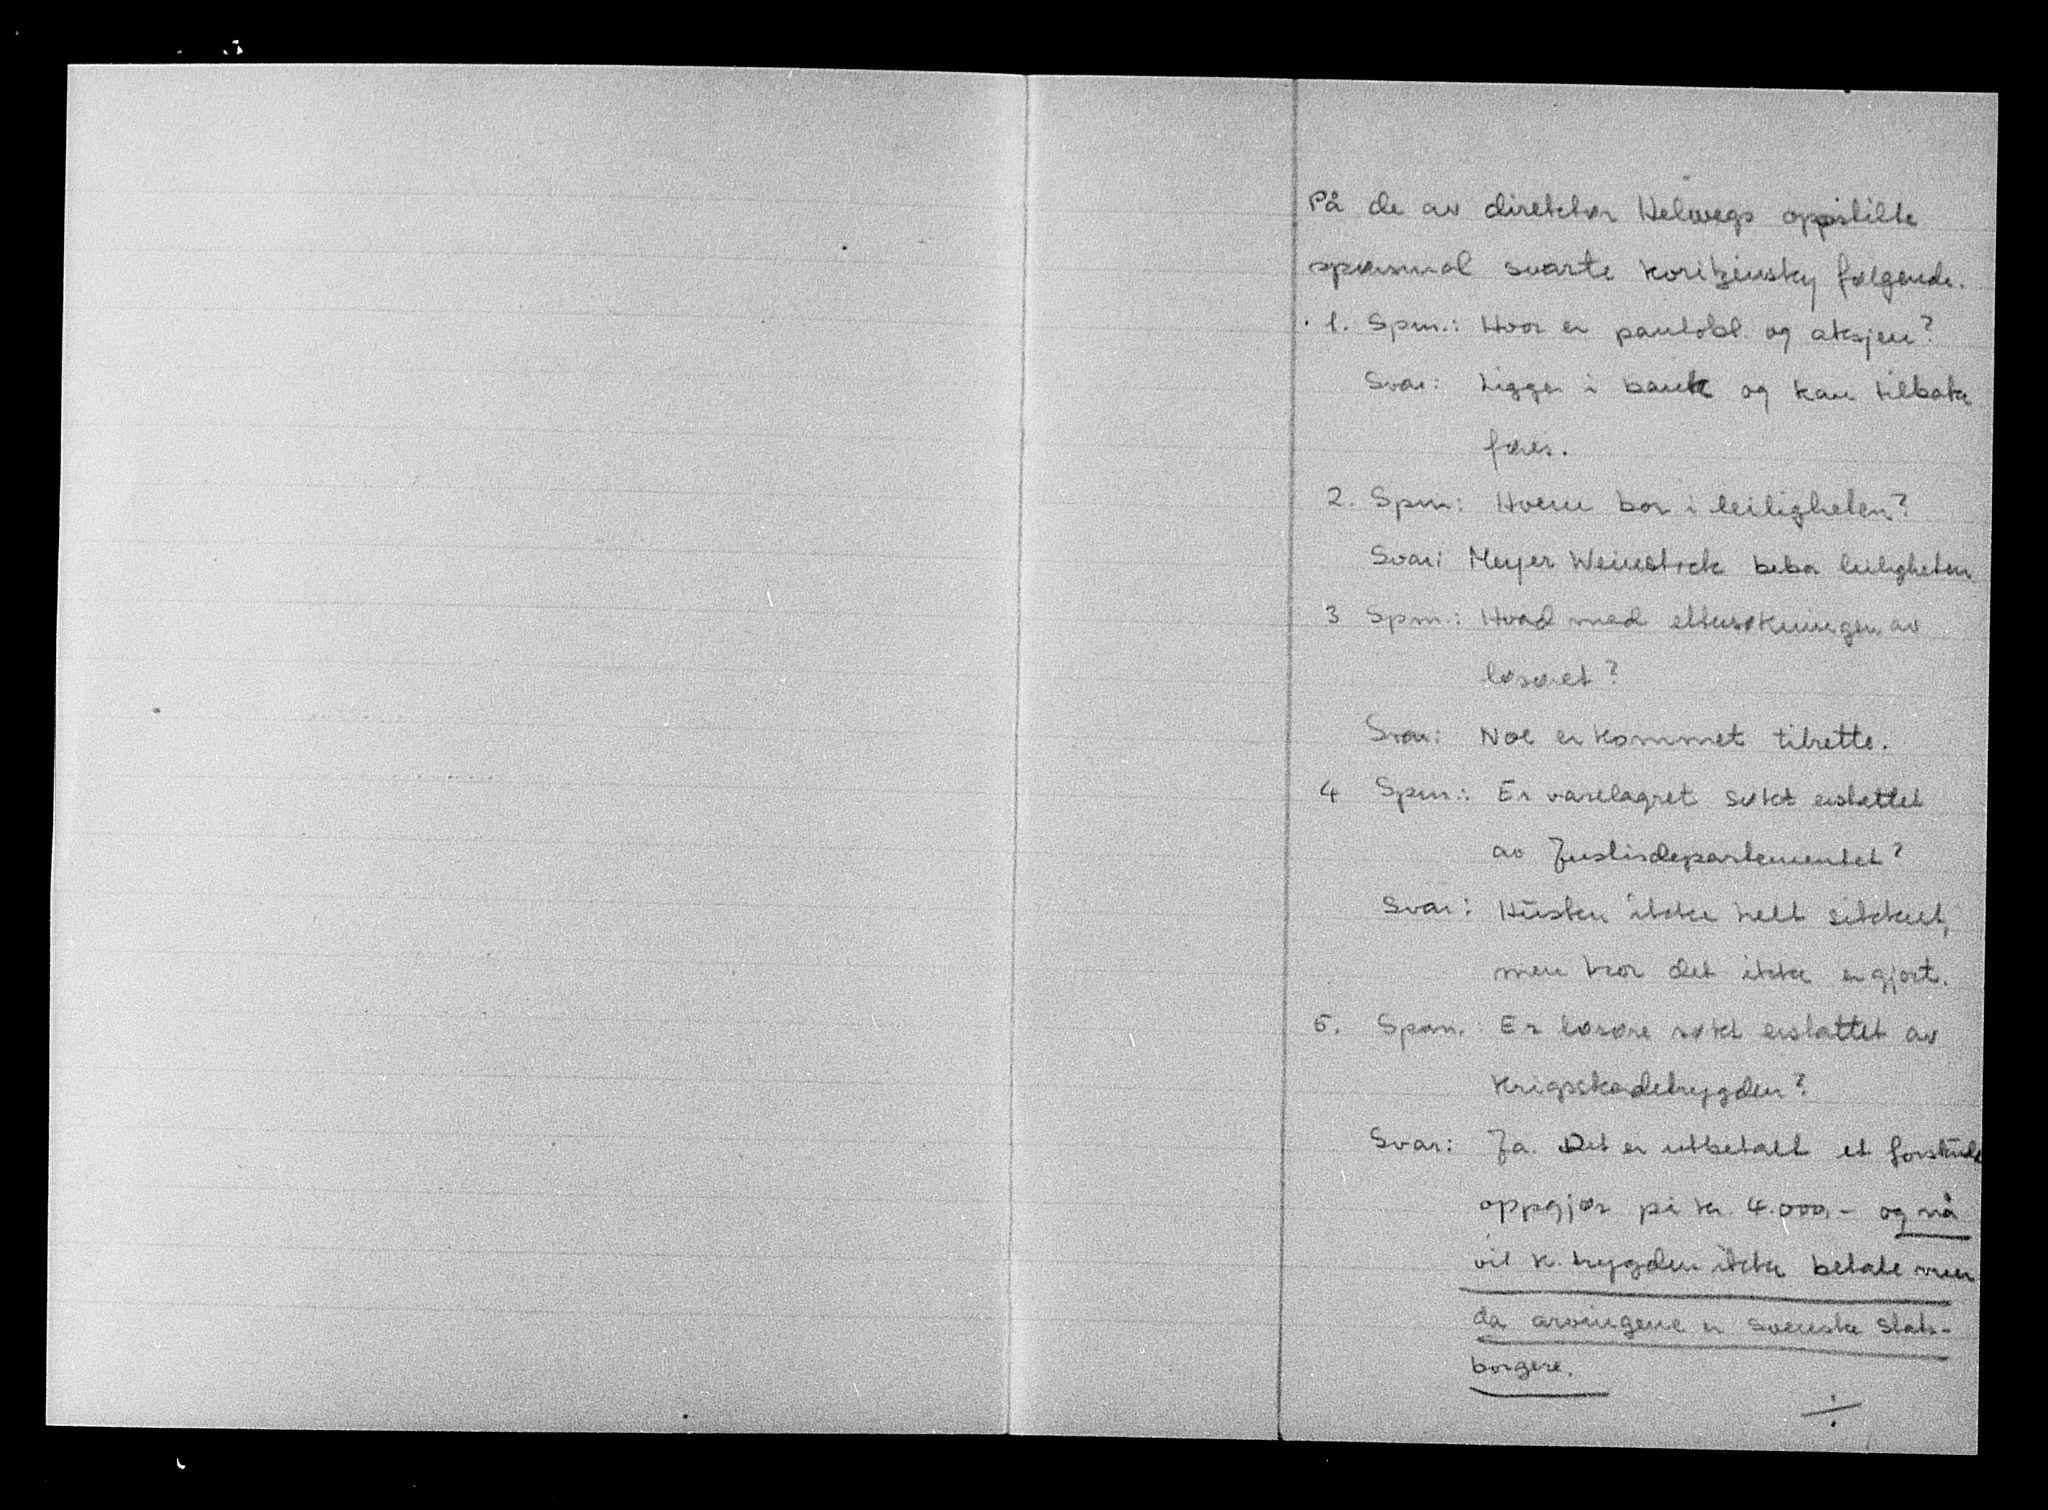 På de av direktør Helwegs oppstilte
spørsmål svarte Koritzinsky følgende.
1. Spm.: Hvor er pantobl. og aksjen?
Svar: Ligger i bank og kan tilbake
føres.
2. Spm: Hvem bor i leiligheten?
Svar: Meyer Weinstock bebor leiligheten
3 Spm.: Hvad med ettersøkningen av
løsøret?
Svar: Noe er kommet tilrette.
4 Spm.: Er varelagret søkt erstattet
av Justisdepartementet?
Svar: Husker ikke helt sikkert,
men tror det ikke er gjort.
5. Spm.: Er løsøre søkt erstattet av
Krigsskadetrygden?
Svar: Ja. Det er utbetalt et forskudd
oppgjør på kr. 4.000,- og nå
vil K. trygden ikke betale mer
da arvingene er svenske stats-
borgere.